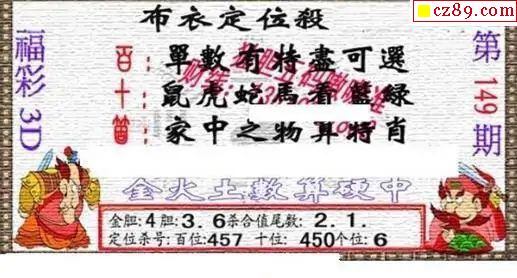 cz89.com
布衣定位殺
福彩3D
第149期
百:單數有特盡可選
十:鼠虎蛇馬看藍綠
個:家中之物算特肖
金火土數算硬中
金胆:4胆:3.6杀合值尾数:2.1.
定位杀号:百位:457 十位:450个位:6